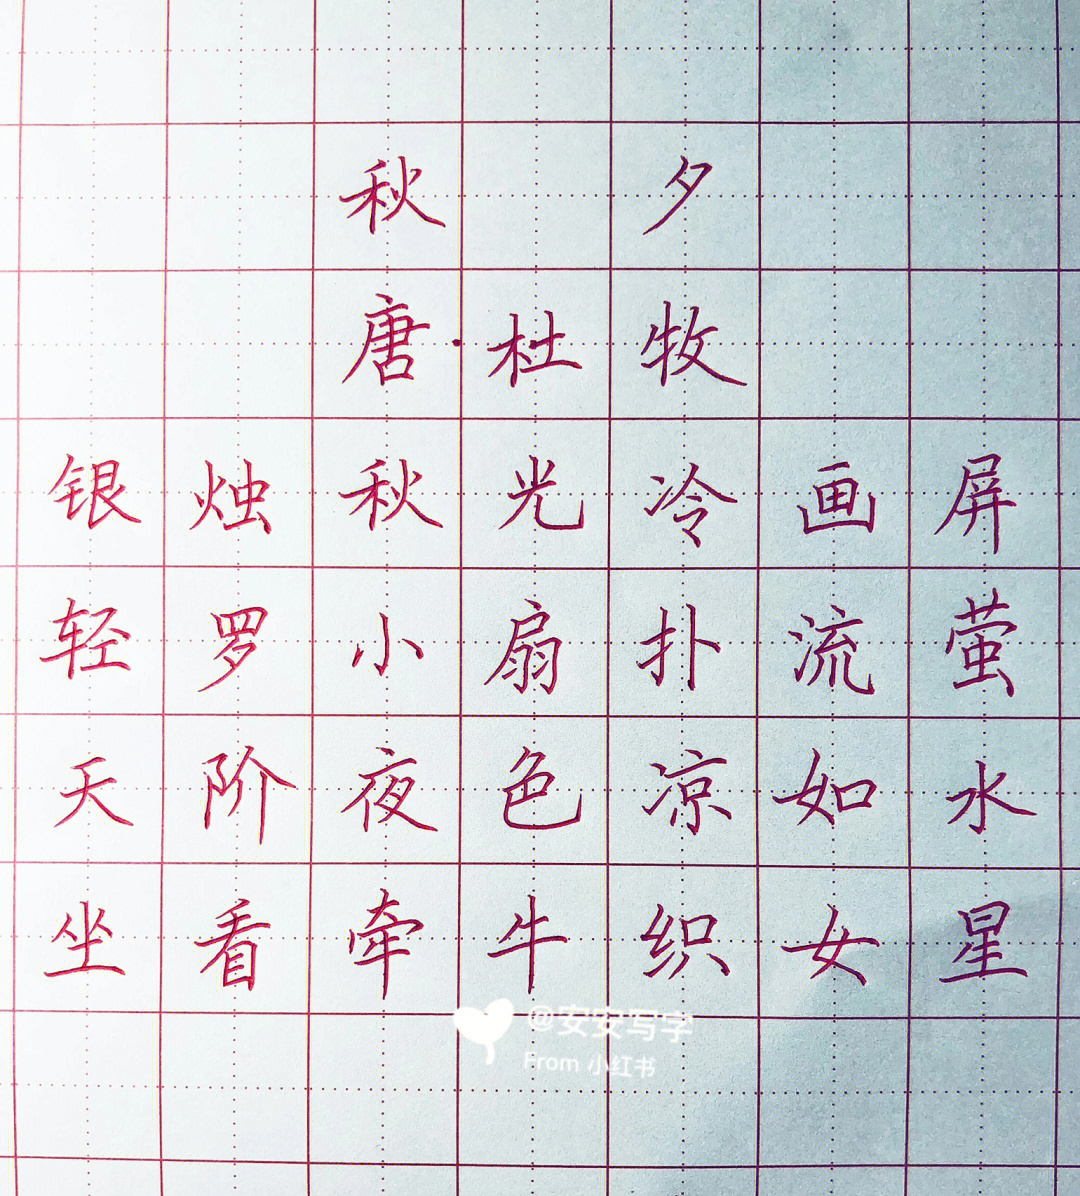 秋夕
唐·杜牧
银烛秋光冷画屏
轻罗小扇扑流萤
天阶夜色凉如水
坐看牵牛织女星
@安安写字
From 小红书